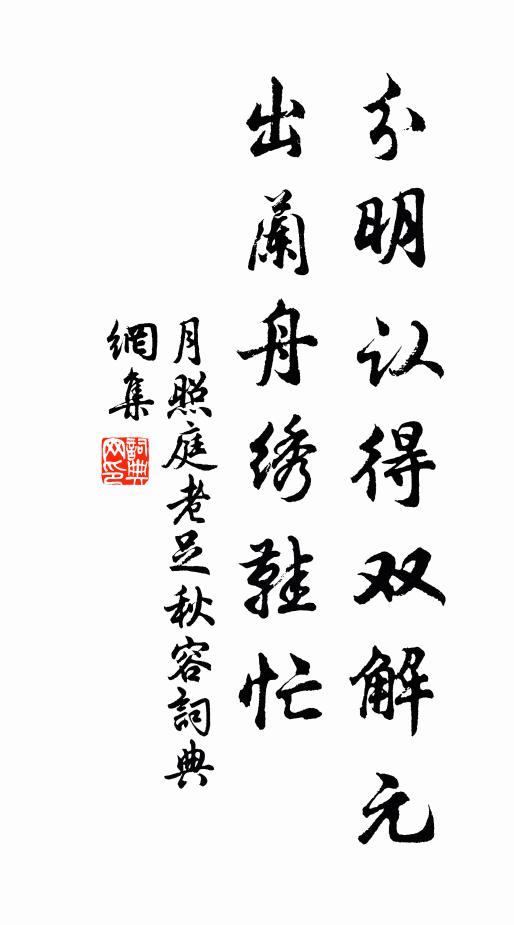 分明认得双解元
出蘭舟绣鞋忙
月照庭老足秋容詞典
網集
詞典
网印